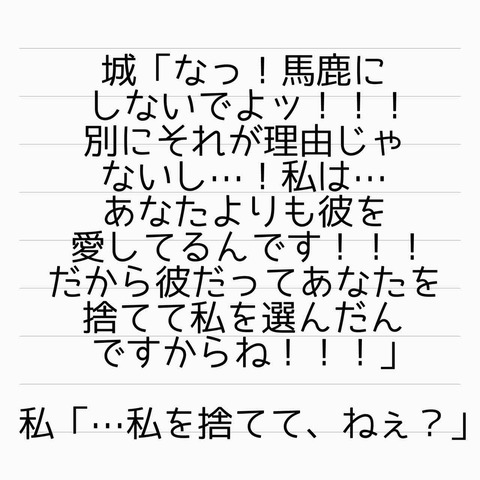 城「なっ！馬鹿に
しないでよッ！！！
別にそれが理由じゃ
ないし…！私は…
あなたよりも彼を
愛してるんです！！！
だから彼だってあなたを
捨てて私を選んだん
ですからね！！！」
私「…私を捨てて、ねぇ？」